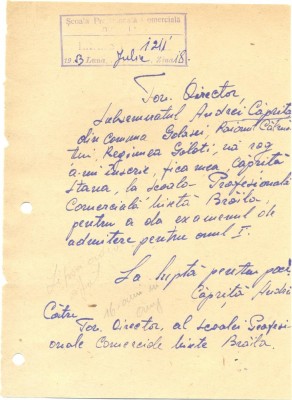 Școala Profesională Comercială
1241
1953 Luna Julie Ziua 18
Tov. Director
Subsemnatul Andrei Căpriță
din comuna Golășei, Raionul Călmă
țui, Regiunea Galați, vă rog
a-mi înscrie, fica mea Căpriță
Stana, la Școala Profesională
Comercială mixtă Brăila,
pentru a da examenul de
admitere pentru anul I.
La luptă pentru pace
Căpriță Andrei
Către
Tov. Director, al școalei Profesi
onale Comerciale mixte Brăila.